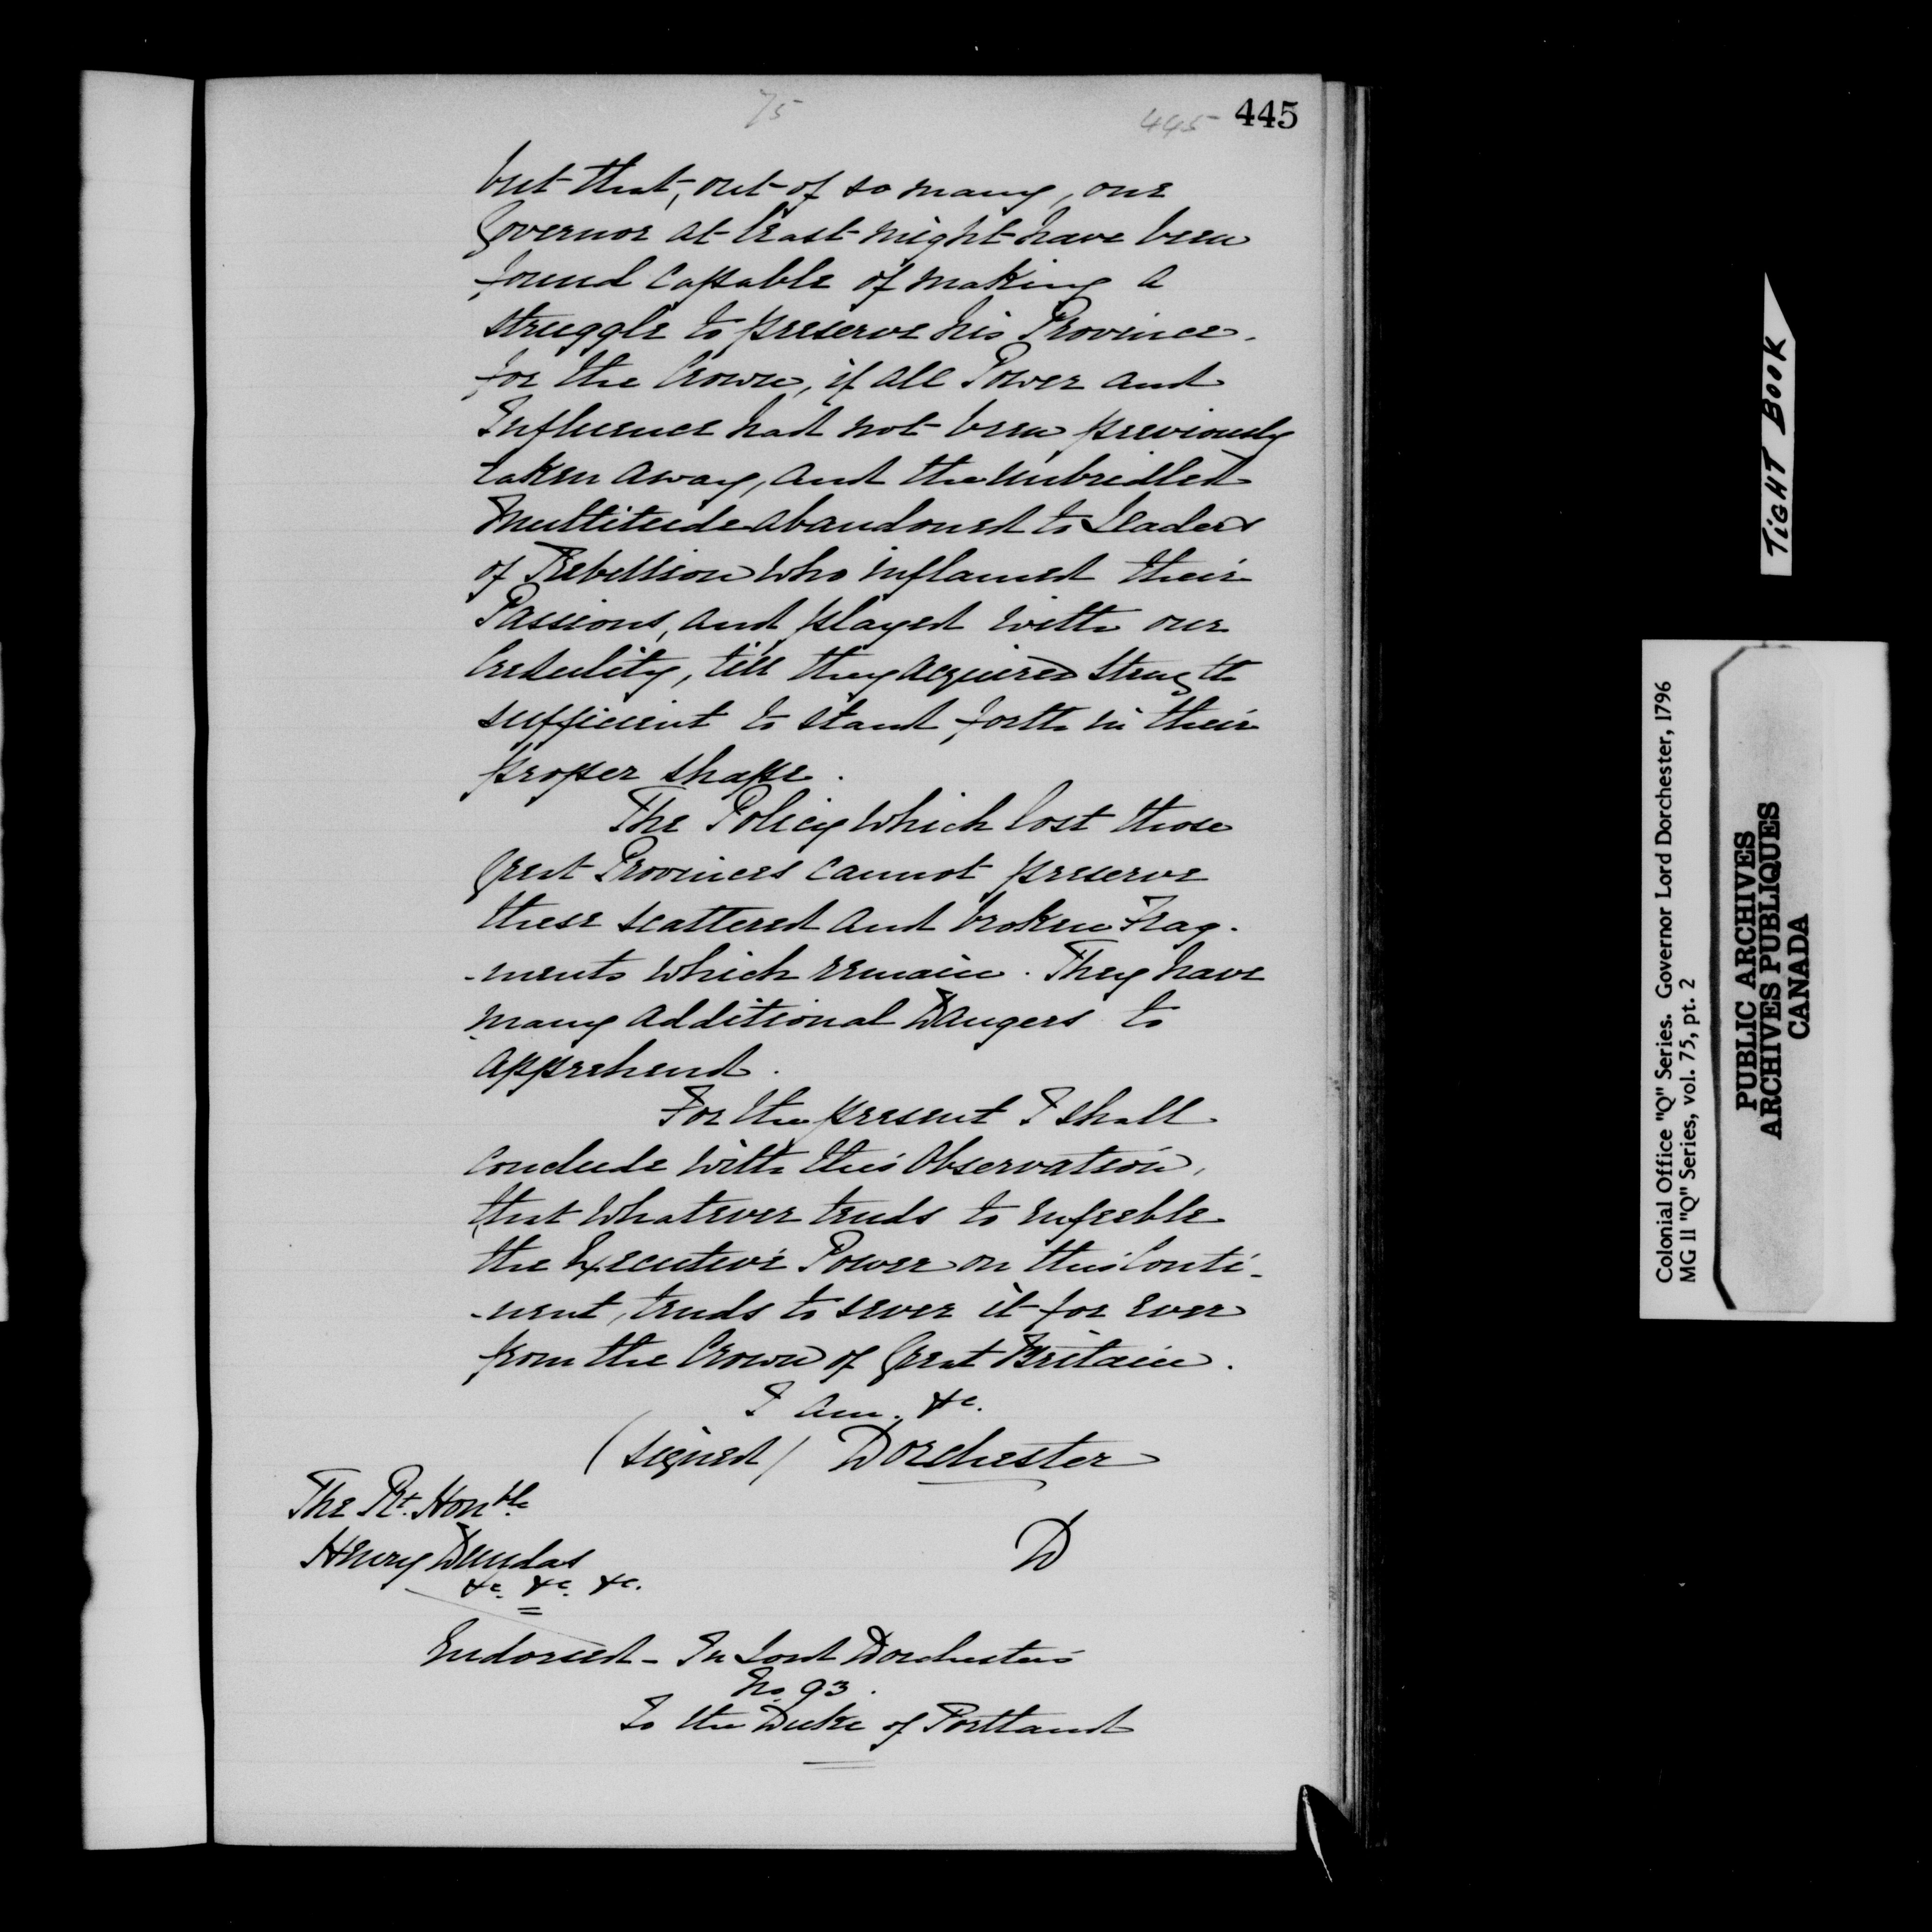 75
445 445
but that, out of so many, one
Governor at least might have been
found capable of making a
struggle to preserve his Province.
for the Crown, if all Power and
Influence had not been previously
taken away, and the unbridled
Multitude abandoned to Leaders
of Rebellion who inflamed their
Passions, and played with our
Credulity, till they acquired Strength
sufficient to stand forth in their
proper shape.
The Policy which lost those
great Provinces cannot preserve
these scattered and broken Frag-
-ments which remain. They have
many additional Dangers to
apprehend.
For the present I shall
conclude with this Observation,
that whatever tends to enfeeble
the Executive Power on this Conti-
-nent, tends to sever it for ever
from the Crown of Great Britain.
I am. &c.
(signed) Dorchester
The Rt. Honble.
Henry Dundas
&c. &c. &c.
D
Endorsed - In Lord Dorchester's
No. 93.
To the Duke of Portland
TIGHT BOOK
Colonial Office "Q" Series. Governor Lord Dorchester, 1796
MG 11 "Q" Series, vol. 75, pt. 2
PUBLIC ARCHIVES
ARCHIVES PUBLIQUES
CANADA